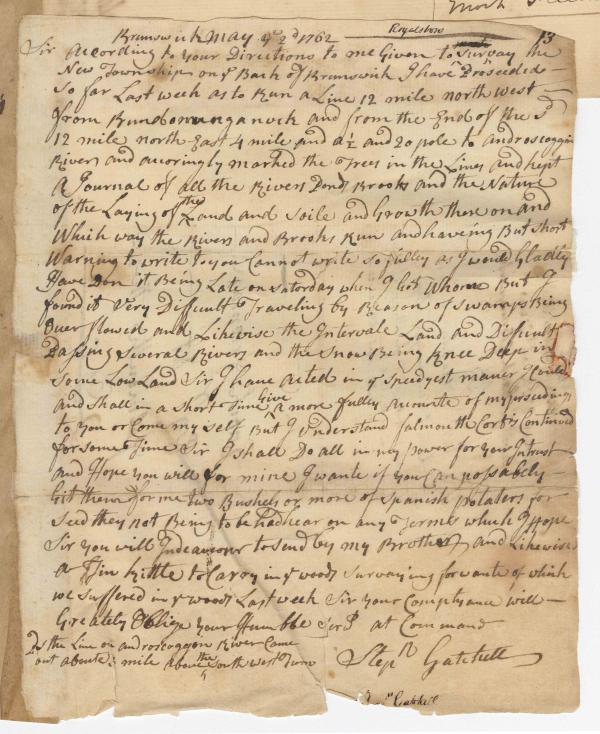 Royalston
13
Brunswick May ye 2d 1762
Sir According to Your Directions to me Given to Survay the
New Township on ye Back of Brunswick I have Proseeded
So far Last week as to Run a Line 12 mile north west
from Bundomunganock and from the End of the Sd
12 mile north East 4 mile and a ½ and 20 pole to androscoggin
River and accoringly marked the Trees in the Lines and kept
A Journal of all the Rivers Ponds Brooks and the Nature
of the Laying of the Land and Soile and Growth there on and
Which way the Rivers and Brooks Run and haveing But short
Warning to write to you Cannot write so fulley as I would Gladley
Have Don it Being Late on Saturday when I Got Whome But I
found it Very Difficult Traveling by Reason of swamps Being
Over flowed and Likewise the Intervale Land and Dificult
Passing Several Rivers and the Snow Being knee Deep in
some Low Land Sir I have acted in ye Speedyest maner I Could
and Shall in a Short Time Give A more fulley acounte of my proseedings
to you or Come my Self But I understand falmouth Cort is Continued
for some Time Sir I shall Do all in my power for Your Intrust
and Hope you will for mine I wante if you Can possabely
Git them for me two Bushels or more of Spanish potaters for
Seed they not Being to be had hear on any Terms which I Hope
Sir you will Indeavour to send by my Brother and Likewise
A Tin kittle to Carry in ye woods Survaying for wante of which
we suffered in ye woods Last week Sir Your Complyance will
Greately Oblige Your Humble Servt at Command
Stepn Gatchell
the Line on androscoggon River Came
out aboute mile above the South west Turn
Gatchell